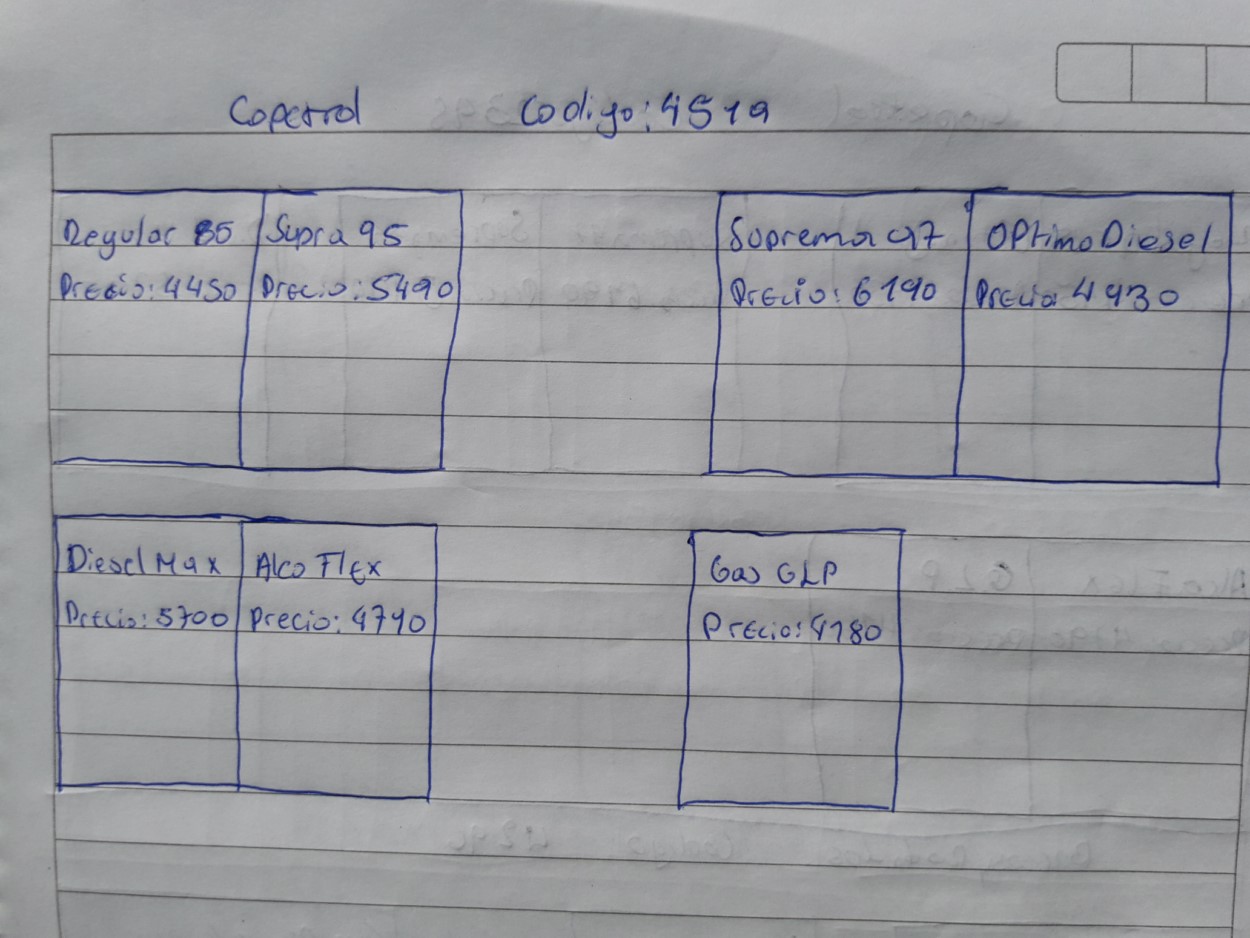 Copetrol Codigo: 4519
Regular 85 Supra 95 Suprema 97 OPtimo Diesel
Precio: 4450 Precio: 5490 Precio: 6190 Precio 4930
Diesel Max Alco Flex Gas GLP
Precio: 5700 Precio: 4790 Precio: 4180